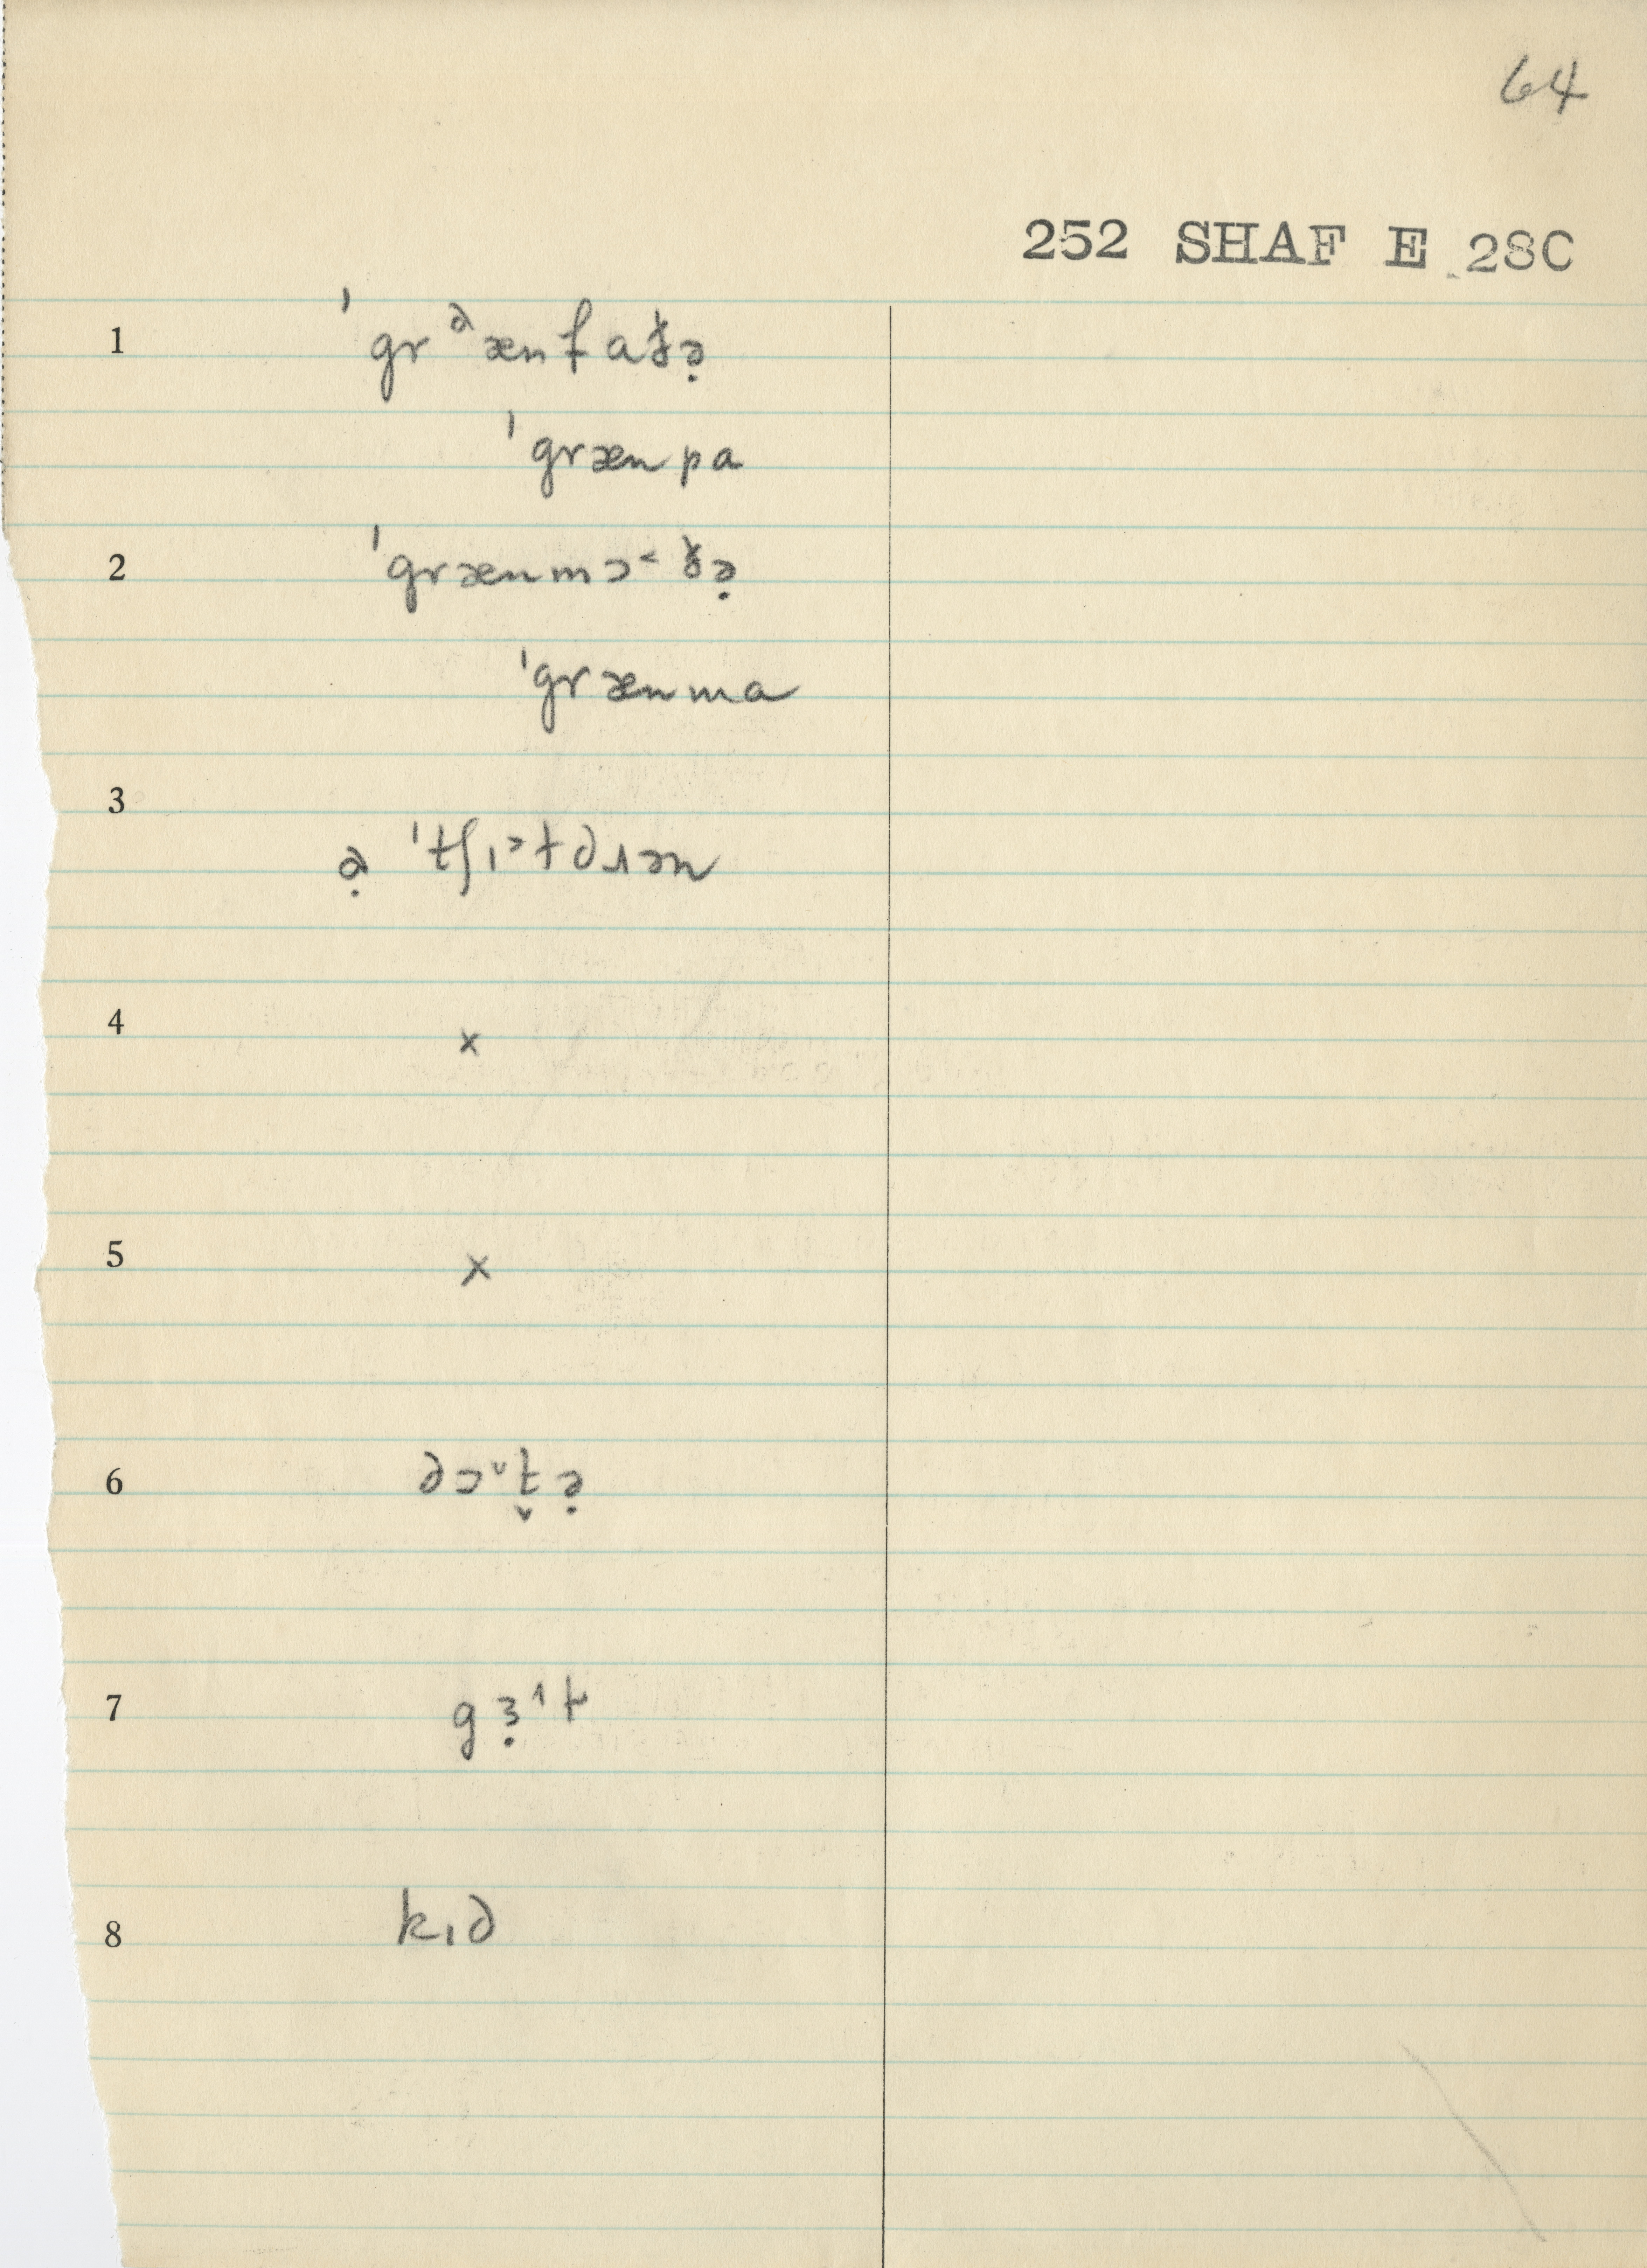 64
252 SHAF E 28C
1 ˈgrᵊænfaðə̣
ˈgrænpa
2 ˈgrænmɔ˂ðə̣
ˈgrænma
3 ə̣ ˈtʃɪ˃ɫdrən
4 ×
5 ×
6 dɔ˅t̬ə̣
7 gɜ̣˄ɫ
8 kɪd